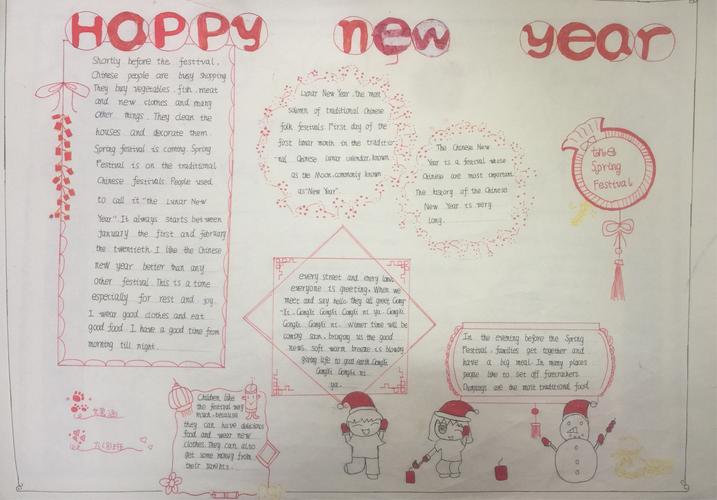 HOPPY new year
Shortly before the festival,
Chinese people are busy shopping
They buy vegetables. fish. meat
and new clothes and many
other things. They clean the
houses and decorate them.
Spring festival is coming. Spring
Festival is on the traditional
Chinese festivals. People used
to call it "the Lunar New
Year". It always starts between
January the first and february
the twentieth. I like the Chinese
new year better than any
other festival. This is a time
especially for rest and joy.
I wear good clothes and eat
good food. I have a good time from
morning till night.
Lunar New Year. the most
solemn of traditional Chinese
folk festivals. First day of the
first lunar month in the traditio
nal Chinese lunar calendar, known
as the Moon.commonly known
as "New Year".
The Chinese New
Year is a festival whise
Chinese are most important.
The history of the Chinese
New Year is very
long.
the
Spring
Festival
every street and every lane.
everyone is greeting, When we
meet and say hello they all greet Gong
Xi. Gongxi Gongxi Gongxi ni ya. Gongxi
Gongxi Gongxi ni. Winter time will be
coming soon, bringing us the good
news. soft warm breeze is blowing
giving life to good earth Gongxi
Gongxi Gongxi ni
ya.
In the evening before the Spring
Festival, families get together and
have a big meal. In many places
people like to set off firecrackers.
Dumplings are the most traditional food
Children like
the festival very
much. because
they can have delicious
food and wear new
clothes. They can also
get some money from
their parents.